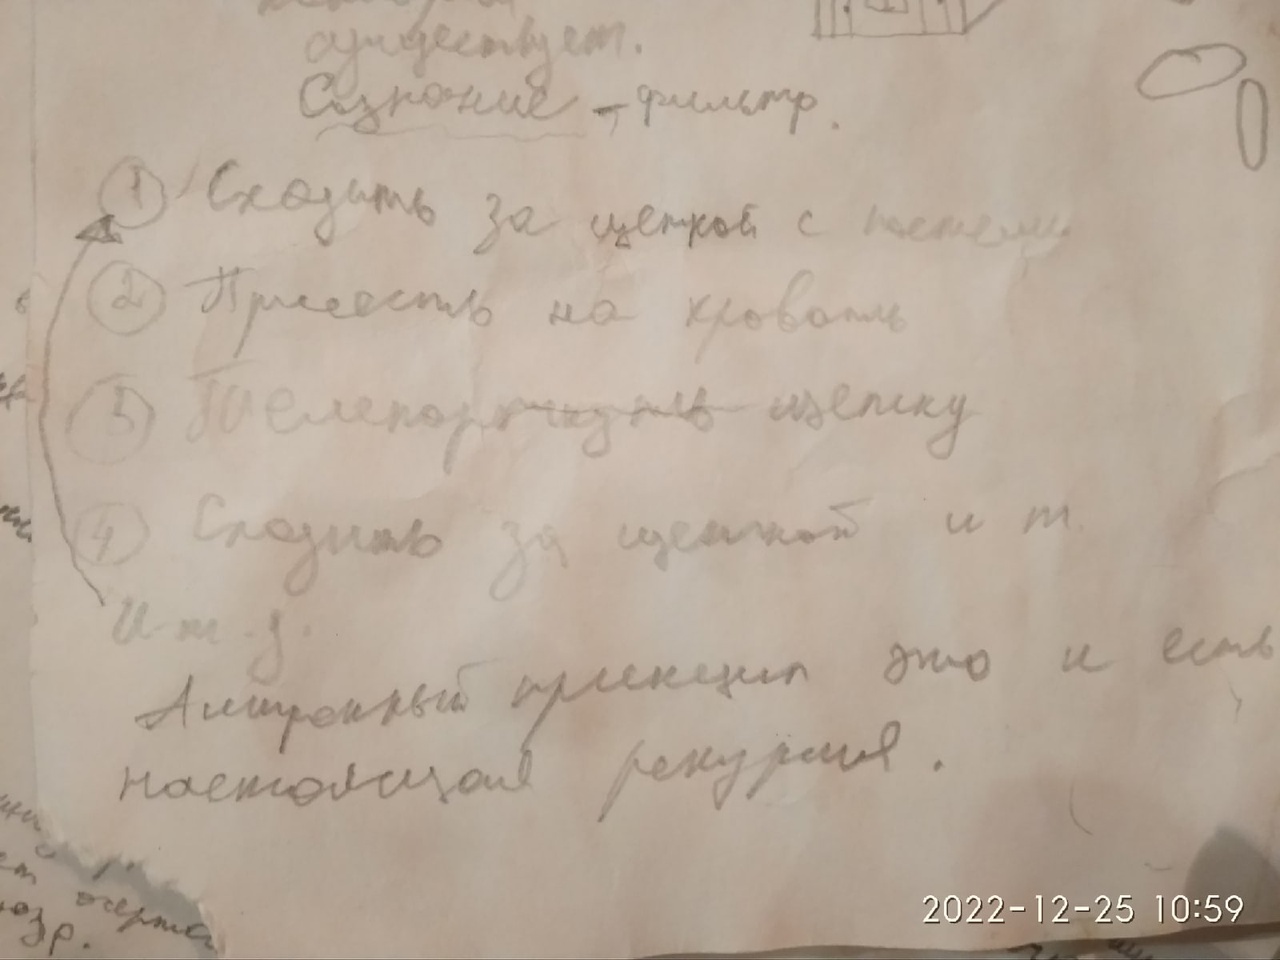 существует.
Сознание – фильтр.
1 Сходить за щепкой с постели
2 Присесть на кровать
3 Телепортнуть щепку
4 Сходить за щепкой и т.
И т. д.
Антропный принцип это и есть
настоящая рекурсия.
очерта
2022-12-25 10:59